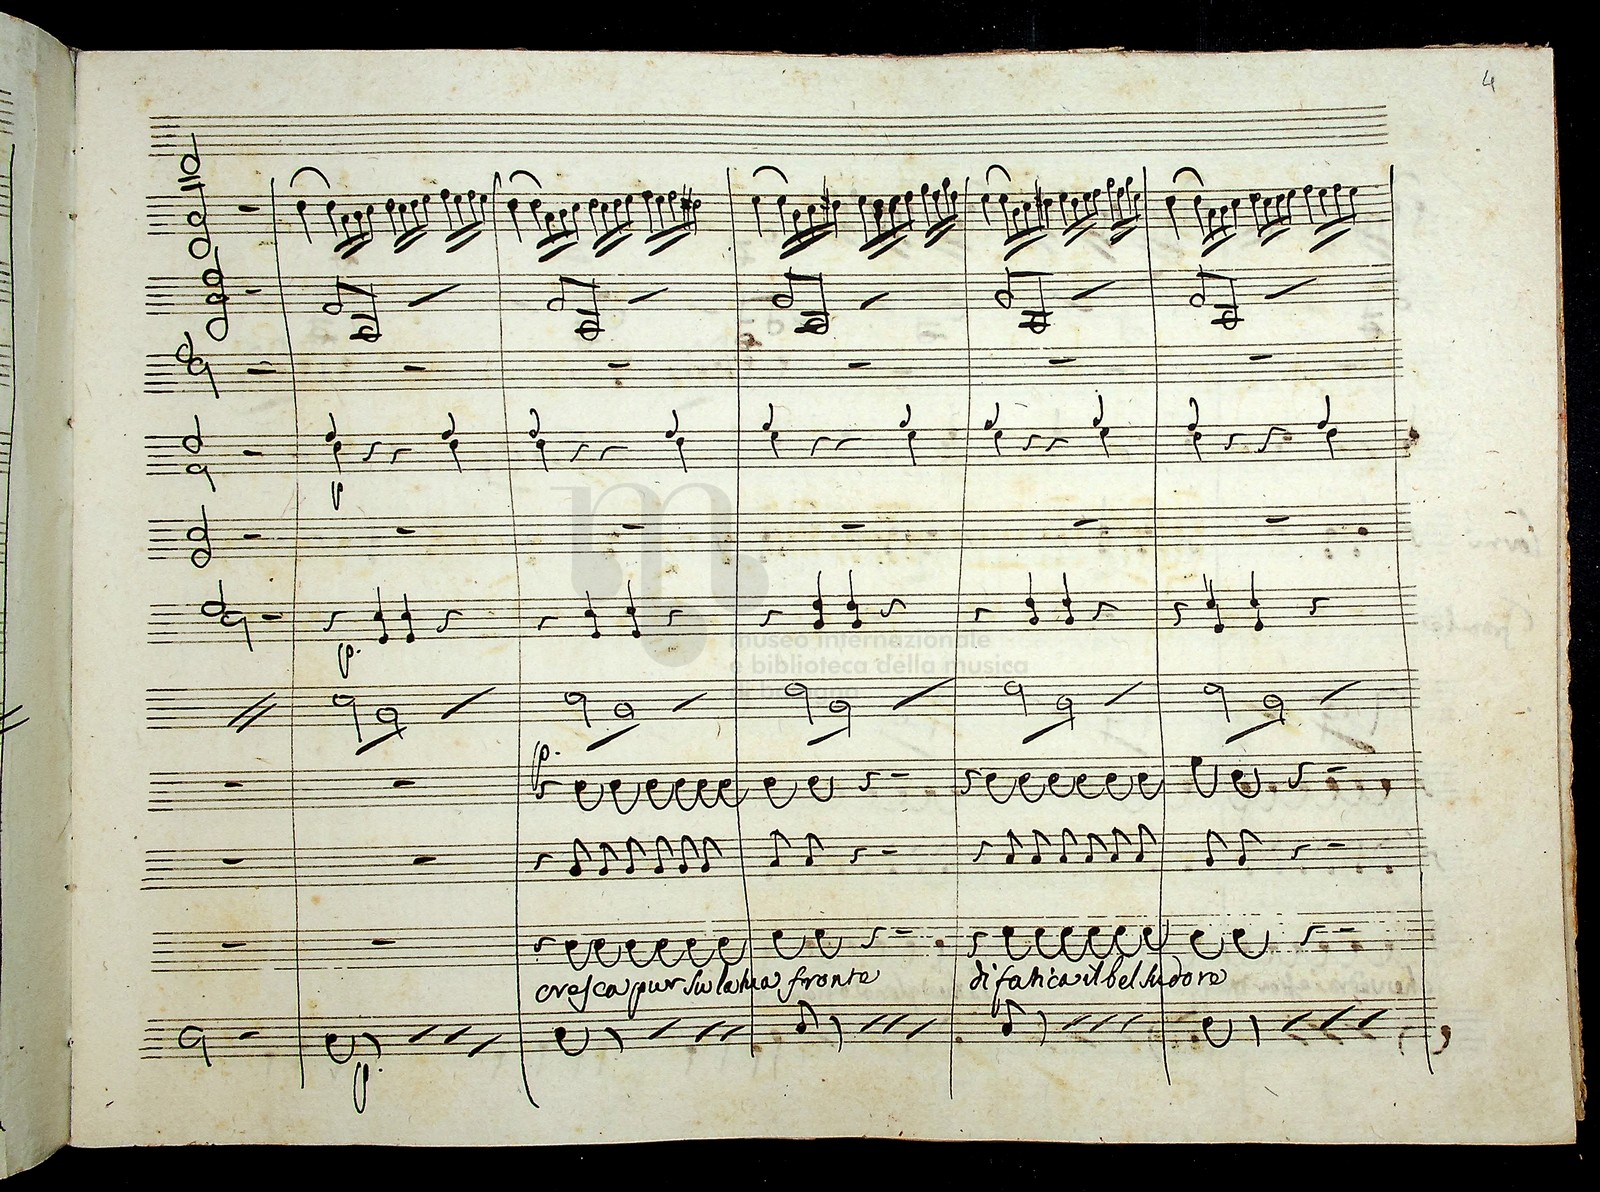 4
p
p.
museo internazionale
e biblioteca della musica
di bologna
p.
cresca pur su la tua fronte di fatica il bel sudore
p.